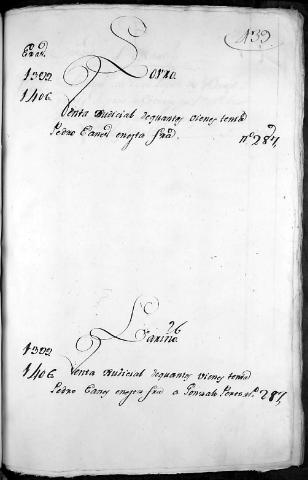 439
Eras.
Lorra
1392
1406
Venta Judicial de quantos vienes tenia
Pedro Eanes en esta fra. nº 287,
Lariño 26
1392
1406 Venta Judicial de quantos vienes tenia
Pedro Eanes en esta fra a Gonzalo Peres nº 287,